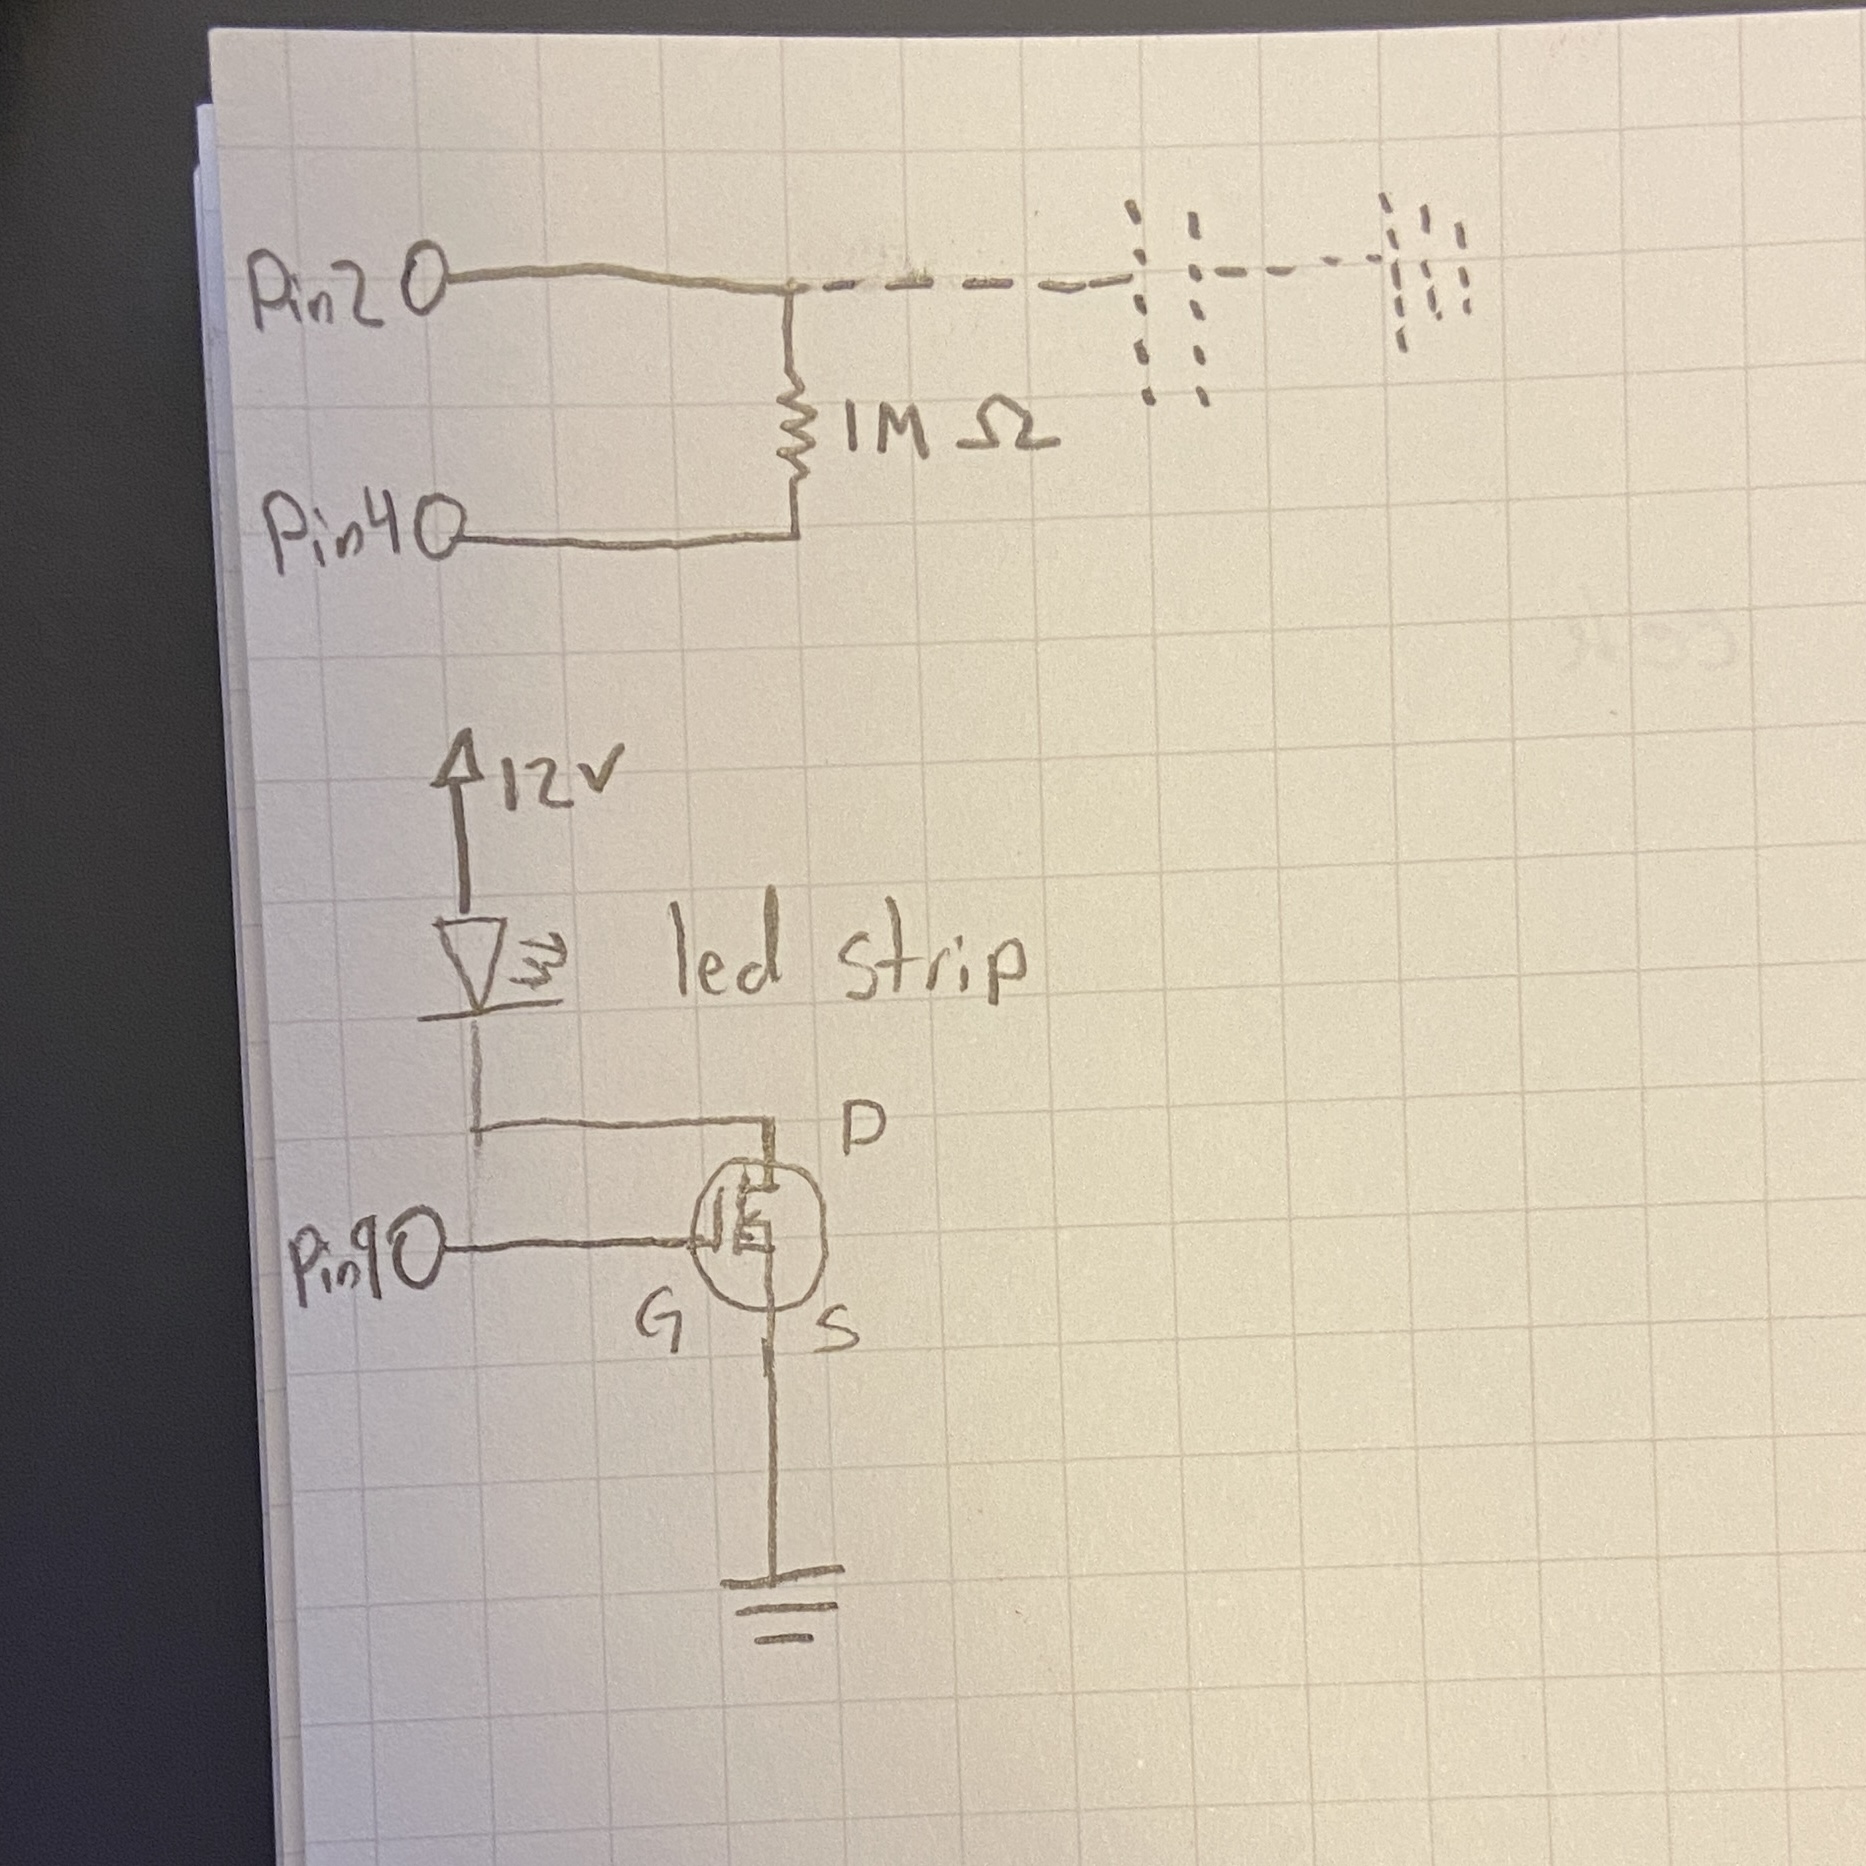 Pin2
1M Ω
Pin4
12V
led strip
D
Pin9
G
S